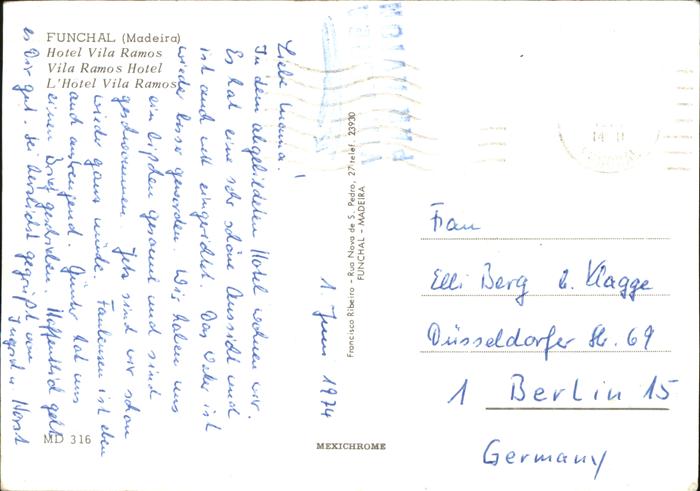 FUNCHAL (Madeira)
Hotel Vila Ramos
Vila Ramos Hotel
L'Hotel Vila Ramos
Liebe Mama!
In dem abgebildeten Hotel wohnen wir.
Es hat eine sehr schöne Aussicht und
ist auch nett eingerichtet. Das Wetter ist
wieder besser geworden. Wir haben uns
ein bißchen gesonnt und sind
geschwommen. Jetzt sind wir schon
wieder ganz müde. Faulenzen ist eben
auch anstrengend. Günter hat uns
einen Brief geschrieben. Hoffentlich geht
es Dir gut. Sei herzlichst gegrüßt von
Ingrid u. Horst
1. Juni 1974
Francisco Ribeiro - Rua Nova de S. Pedro, 27 telef. 23930
FUNCHAL - MADEIRA
Frau
Elli Berg b. Klagge
Düsseldorfer Str. 69
1 Berlin 15
Germany
MD 316
MEXICHROME